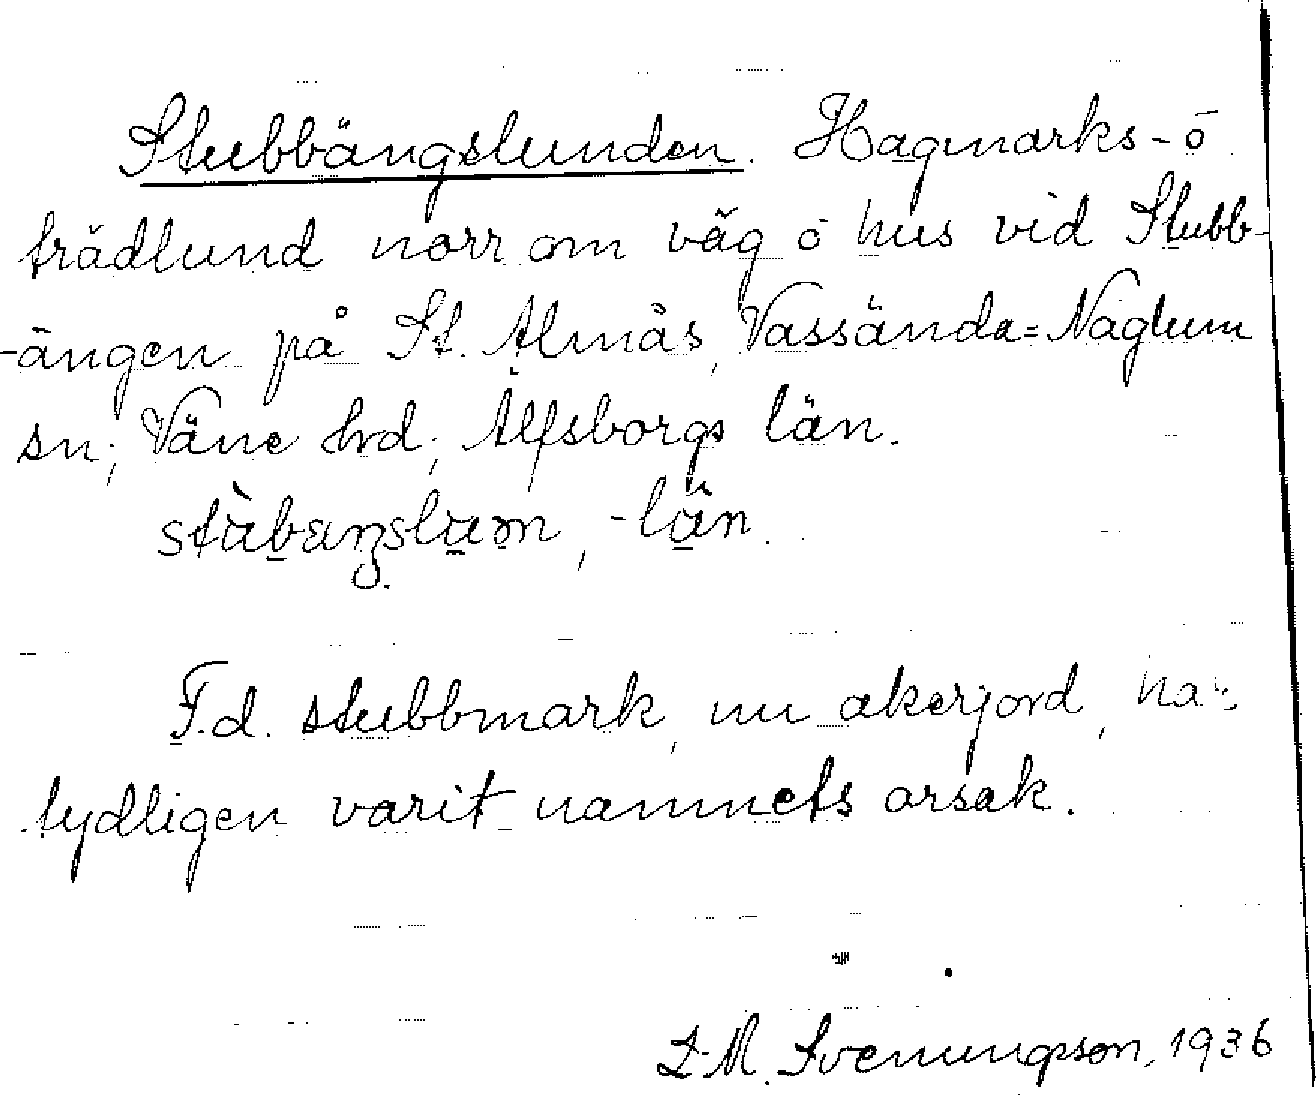 Stubbängslunden. Hagmarks- ō
trädlund norr om väg ō hus vid Stubb-
-ängen på St. Almås, Vassända=Naglum
sn; Väne hrd; Älfsborgs län.
-län.
F.d. stubbmark, nu åkerjord, har
tydligen varit namnets orsak.
Svenungsson, 1936